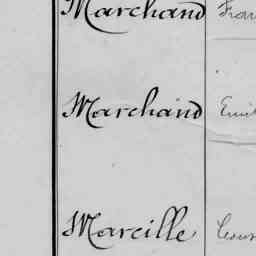 Marchand
Marchand
Marcille